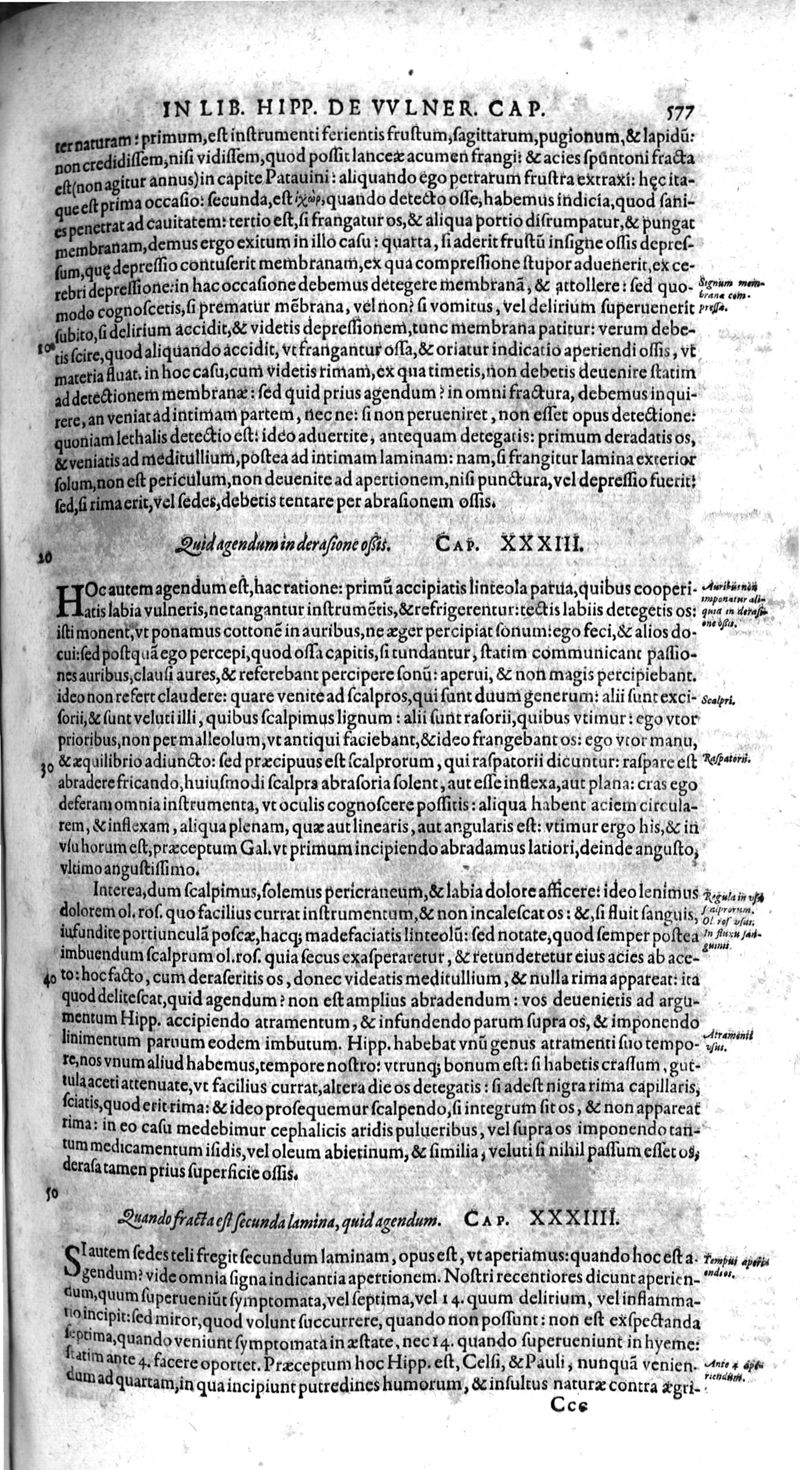 IN LIB. HIPP. DE VVLNER. CAP. 577
ter naturam: primum, eſt inſtrumenti ferientis fruſtum, ſagittarum, pugionum, & lapidū:
non credidiſſem, niſi vidiſſem, quod poſſit lanceæ acumen frangi: & acies ſpuntoni fracta
eſt (non agitur annus) in capite Patauini: aliquando ego petrarum fruſtra extraxi: hęc ita-
que eſt prima occaſio: ſecunda, eſt ἰχὼρ, quando detecto oſſe, habemus indicia, quod ſani-
es penetrat ad cauitatem: tertio eſt, ſi frangatur os, & aliqua portio diſrumpatur, & pungat
membranam, demus ergo exitum in illo caſu: quarta, ſi aderit fruſtū inſigne oſſis depreſ-
ſum, quę depreſſio contuſerit membranam, ex qua compreſſione ſtupor aduenerit, ex ce-
rebri depreſſione: in hac occaſione debemus detegere membranā, & attollere: ſed quo-
Signum mem-
brana com-
preſſa.
modo cognoſcetis, ſi prematur mēbrana, vel non? ſi vomitus, vel delirium ſuperuenerit
ſubito, ſi delirium accidit, & videtis depreſſionem, tunc membrana patitur: verum debe-
10 tis ſcire, quod aliquando accidit, vt frangantur oſſa, & oriatur indicatio aperiendi oſſis, vt
materia fluat. in hoc caſu, cum videtis rimam, ex qua timetis, non debetis deuenire ſtatim
ad detectionem membranæ: ſed quid prius agendum? in omni fractura, debemus inqui-
rere, an veniat ad intimam partem, nec ne: ſi non perueniret, non eſſet opus detectione:
quoniam lethalis detectio eſt: ideo aduertite, antequam detegatis: primum deradatis os,
& veniatis ad meditullium, poſtea ad intimam laminam: nam, ſi frangitur lamina exterior
ſolum, non eſt periculum, non deuenite ad apertionem, niſi punctura, vel depreſſio fuerit:
ſed, ſi rima erit, vel ſedes, debetis tentare per abraſionem oſſis.
Quid agendum in deraſione oſſis. CAP. XXXIII.
20
HOc autem agendum eſt, hac ratione: primū accipiatis linteola parua, quibus cooperi-
Auribus non
imponatur ali-
quid in deraſi-
one oſſis.
atis labia vulneris, ne tangantur inſtrumētis, & refrigerentur: tectis labiis detegetis os:
iſti monent, vt ponamus cottonē in auribus, ne æger percipiat ſonum: ego feci, & alios do-
cui: ſed poſtquā ego percepi, quod oſſa capitis, ſi tundantur, ſtatim communicant paſſio-
nes auribus, clauſi aures, & referebant percipere ſonū: aperui, & non magis percipiebant.
ideo non refert claudere: quare venite ad ſcalpros, qui ſunt duum generum: alii ſunt exci-
Scalpri.
ſorii, & ſunt veluti illi, quibus ſcalpimus lignum: alii ſunt raſorii, quibus vtimur: ego vtor
prioribus, non per malleolum, vt antiqui faciebant, & ideo frangebant os: ego vtor manu,
30 & æquilibrio adiuncto: ſed præcipuus eſt ſcalprorum, qui raſpatorii dicuntur: raſpare eſt
Raſpatorii.
abradere fricando, huiuſmodi ſcalpra abraſoria ſolent, aut eſſe inflexa, aut plana: cras ego
deferam omnia inſtrumenta, vt oculis cognoſcere poſſitis: aliqua habent aciem circula-
rem, & inflexam, aliqua plenam, quæ aut linearis, aut angularis eſt: vtimur ergo his, & in
vſu horum eſt, præceptum Gal. vt primum incipiendo abradamus latiori, deinde anguſto,
vltimo anguſtiſſimo.
Interea, dum ſcalpimus, ſolemus pericraneum, & labia dolore afficere: ideo lenimus
Regula in vſu
ſcalprorum.
Ol. roſ vſus.
In fluxu ſan-
guinis.
dolorem ol. roſ. quo facilius currat inſtrumentum, & non incaleſcat os: &, ſi fluit ſanguis,
iufundite portiunculā poſcæ, hacq; madefaciatis linteolū: ſed notate, quod ſemper poſtea
imbuendum ſcalprum ol. roſ. quia ſecus exaſperaretur, & retunderetur eius acies ab ace-
40 to: hoc facto, cum deraſeritis os, donec videatis meditullium, & nulla rima appareat: ita
quod deliteſcat, quid agendum? non eſt amplius abradendum: vos deuenietis ad argu-
mentum Hipp. accipiendo atramentum, & infundendo parum ſupra os, & imponendo
linimentum paruum eodem imbutum. Hipp. habebat vnū genus atramenti ſuo tempo-
Atramenti
vſus.
re, nos vnum aliud habemus, tempore noſtro: vtrunq; bonum eſt: ſi habetis craſſum, gut-
tula aceti attenuate, vt facilius currat, altera die os detegatis: ſi adeſt nigra rima capillaris,
ſciatis, quod erit rima: & ideo proſequemur ſcalpendo, ſi integrum ſit os, & non appareat
rima: in eo caſu medebimur cephalicis aridis pulueribus, vel ſupra os imponendo tan-
tum medicamentum iſidis, vel oleum abietinum, & ſimilia, veluti ſi nihil paſſum eſſet os,
deraſa tamen prius ſuperficie oſſis.
50
Quando fracta eſt ſecunda lamina, quid agendum. CAP. XXXIIII.
SI autem ſedes teli fregit ſecundum laminam, opus eſt, vt aperiamus: quando hoc eſt a-
Tempus aperi-
endi os.
gendum? vide omnia ſigna indicantia apertionem. Noſtri recentiores dicunt aperien-
dum, quum ſuperueniūt ſymptomata, vel ſeptima, vel 14. quum delirium, vel inflamma-
tio incipit: ſed miror, quod volunt ſuccurrere, quando non poſſunt: non eſt exſpectanda
ſeptima, quando veniunt ſymptomata in æſtate, nec 14. quando ſuperueniunt in hyeme:
ſtatim ante 4. facere oportet. Præceptum hoc Hipp. eſt, Celſi, & Pauli, nunquā venien-
Ante 4 ape-
riendum.
dum ad quartam, in qua incipiunt putredines humorum, & inſultus naturæ contra ægri-
Ccc